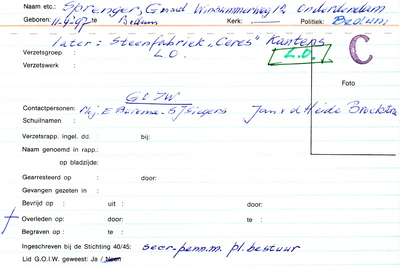 Naam etc.: Sprenger, G Winsumerweg 12 Onderdendam
Geboren: 11-9-07 te Bedum Kerk: Politiek: Bedum
later: Steenfabriek "Ceres" Kantens
Verzetsgroep : L.O. L.O. C
Verzetswerk :
Foto
G & ZW
Contactpersonen: Mej. E Burema - S Jan v d Heide
Schuilnamen :
Verzetsrapp. ingel. dd. bij:
Naam genoemd in rapp.:
op bladzijde:
Gearresteerd op : door:
Gevangen gezeten in :
Bevrijd op : uit : door:
† Overleden op: door: te :
Begraven op : te :
Ingeschreven bij de Stichting 40/45: secr-pennm. pl. bestuur
Lid G.O.I.W. geweest: Ja / Neen